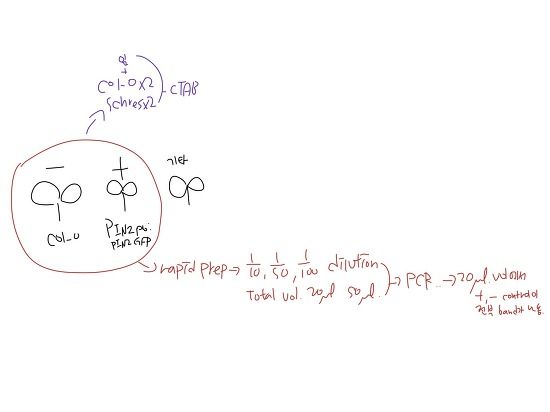 잎
+
Col-0x2
Schresx2
CTAB
-
+
기타
Col-0
PIN2pro:
PIN2GFP
rapid prep → 1/10, 1/50, 1/100 dilution
Total vol. 20μl 50μl.
PCR → 20μl. volum
+, - control
전부 band가 나옴.